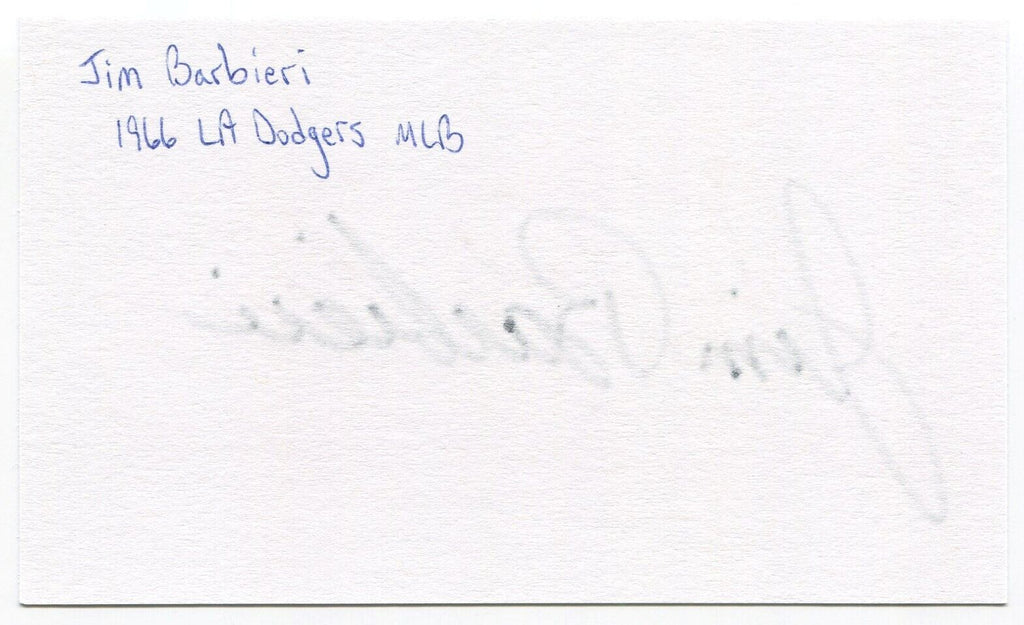 Jim Barbieri
1966 LA Dodgers MLB
Jim Barbieri